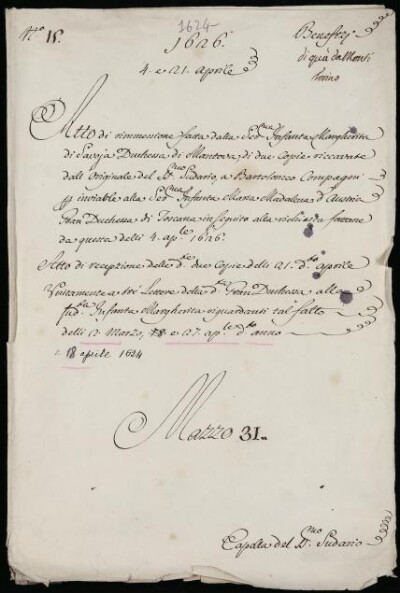 N.º 15.
1624
1626.
4. e 21. Aprile
Benefizj
di quà da Monti
Torino
Atto di rimmessione fatta dalla Ser.ma Infanta Margherita
di Savoja Duchessa di Mantova, di due Copie riccavate
dall'Originale del S.mo Sudario, a Bartolomeo Compagni
per inviarle alla Ser.ma Infanta Maria Madalena d'Austria
Gran Duchessa di Toscana in seguito alla richiesta fattane
da questa delli 4. ap.le 1626.
Atto di recezione delle d.e due Copie delli 21. d.o aprile
Unitamente a tre Lettere della d.a Gran Duchessa alla
sud.a Infanta Margherita riguardanti tal fatto
delli 12 Marzo, 18 e 27. ap.le d.o anno
e 18 aprile 1624
Mazzo 31.
Capella del S.mo Sudario